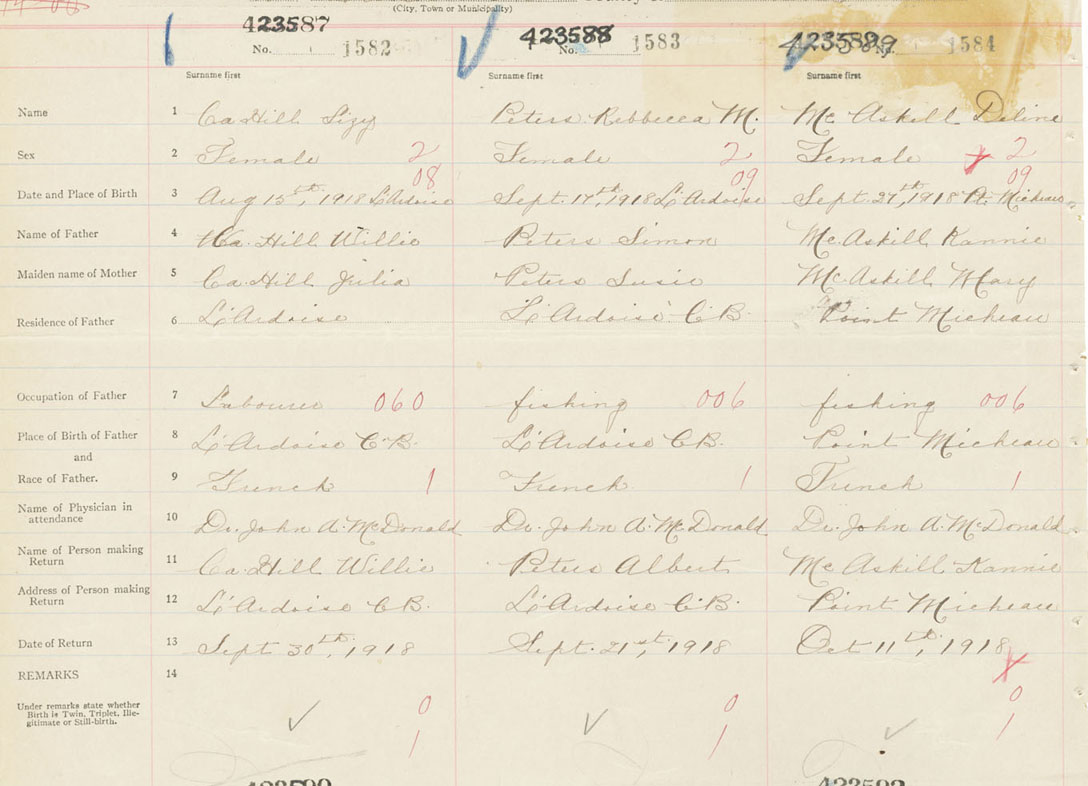 (City, Town or Municipality)
423587 423588 423589
No. 1582 No. 1583 No. 1584
Surname first Surname first Surname first
Name 1 Ca Hill Lizy Peters Rebbecca M. Mc Askill Deline
Sex 2 Female 2 Female 2 Female 2
08 09 09
Date and Place of Birth 3 Aug 15th, 1918 L'Ardoise Sept. 17th, 1918 L'Ardoise Sept. 27th, 1918 Pt. Micheau
Name of Father 4 Ca. Hill Willie Peters Simon Mc. Askill Kannie
Maiden name of Mother 5 Ca. Hill Julia Peters Susie Mc. Askill Mary
Residence of Father 6 L'Ardoise L'Ardoise C.B. Point Micheau
Occupation of Father 7 Labourer 060 fishing 006 fishing 006
Place of Birth of Father 8 L'Ardoise C.B. L'Ardoise C.B. Point Micheau
and
Race of Father. 9 French 1 French 1 French 1
Name of Physician in
attendance 10 Dr. John A. McDonald Dr. John A. McDonald Dr. John A. McDonald
Name of Person making
Return 11 Ca. Hill Willie Peters Albert Mc Askill Kannie
Address of Person making
Return 12 L'Ardoise C.B. L'Ardoise C.B. Point Micheau
Date of Return 13 Sept 30th, 1918 Sept. 21st, 1918 Oct 11th, 1918
REMARKS 14
Under remarks state whether
Birth is Twin, Triplet, Ille-
gitimate or Still-birth.
0 0 0
1 1 1